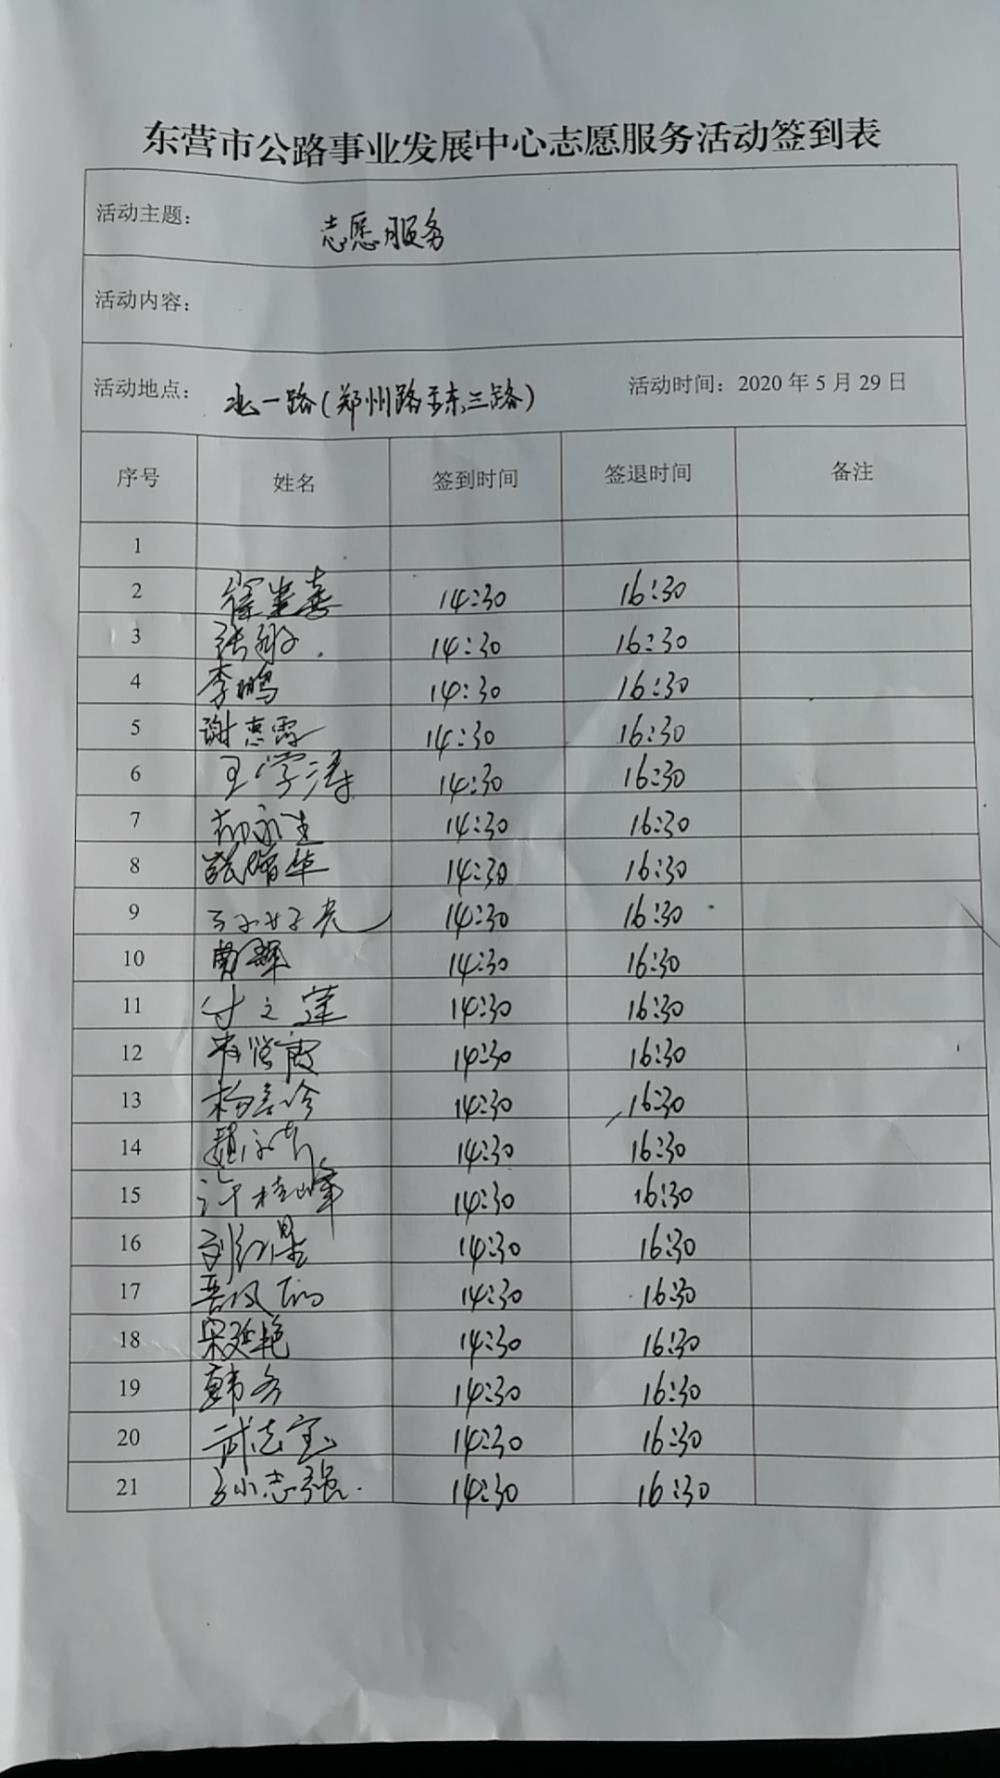 东营市公路事业发展中心志愿服务活动签到表
活动主题: 志愿服务
活动内容:
活动地点: 北一路(郑州路至东三路) 活动时间: 2020 年 5 月 29 日
序号 姓名 签到时间 签退时间 备注
1
2 14:30 16:30
3 14:30 16:30
4 李鹏 14:30 16:30
5 谢惠霞 14:30 16:30
6 王学涛 14:30 16:30
7 14:30 16:30
8 14:30 16:30
9 14:30 16:30
10 14:30 16:30
11 付之莲 14:30 16:30
12 14:30 16:30
13 14:30 16:30
14 14:30 16:30
15 许桂峰 14:30 16:30
16 14:30 16:30
17 14:30 16:30
18 宋延艳 14:30 16:30
19 14:30 16:30
20 武志宝 14:30 16:30
21 孙志强 14:30 16:30